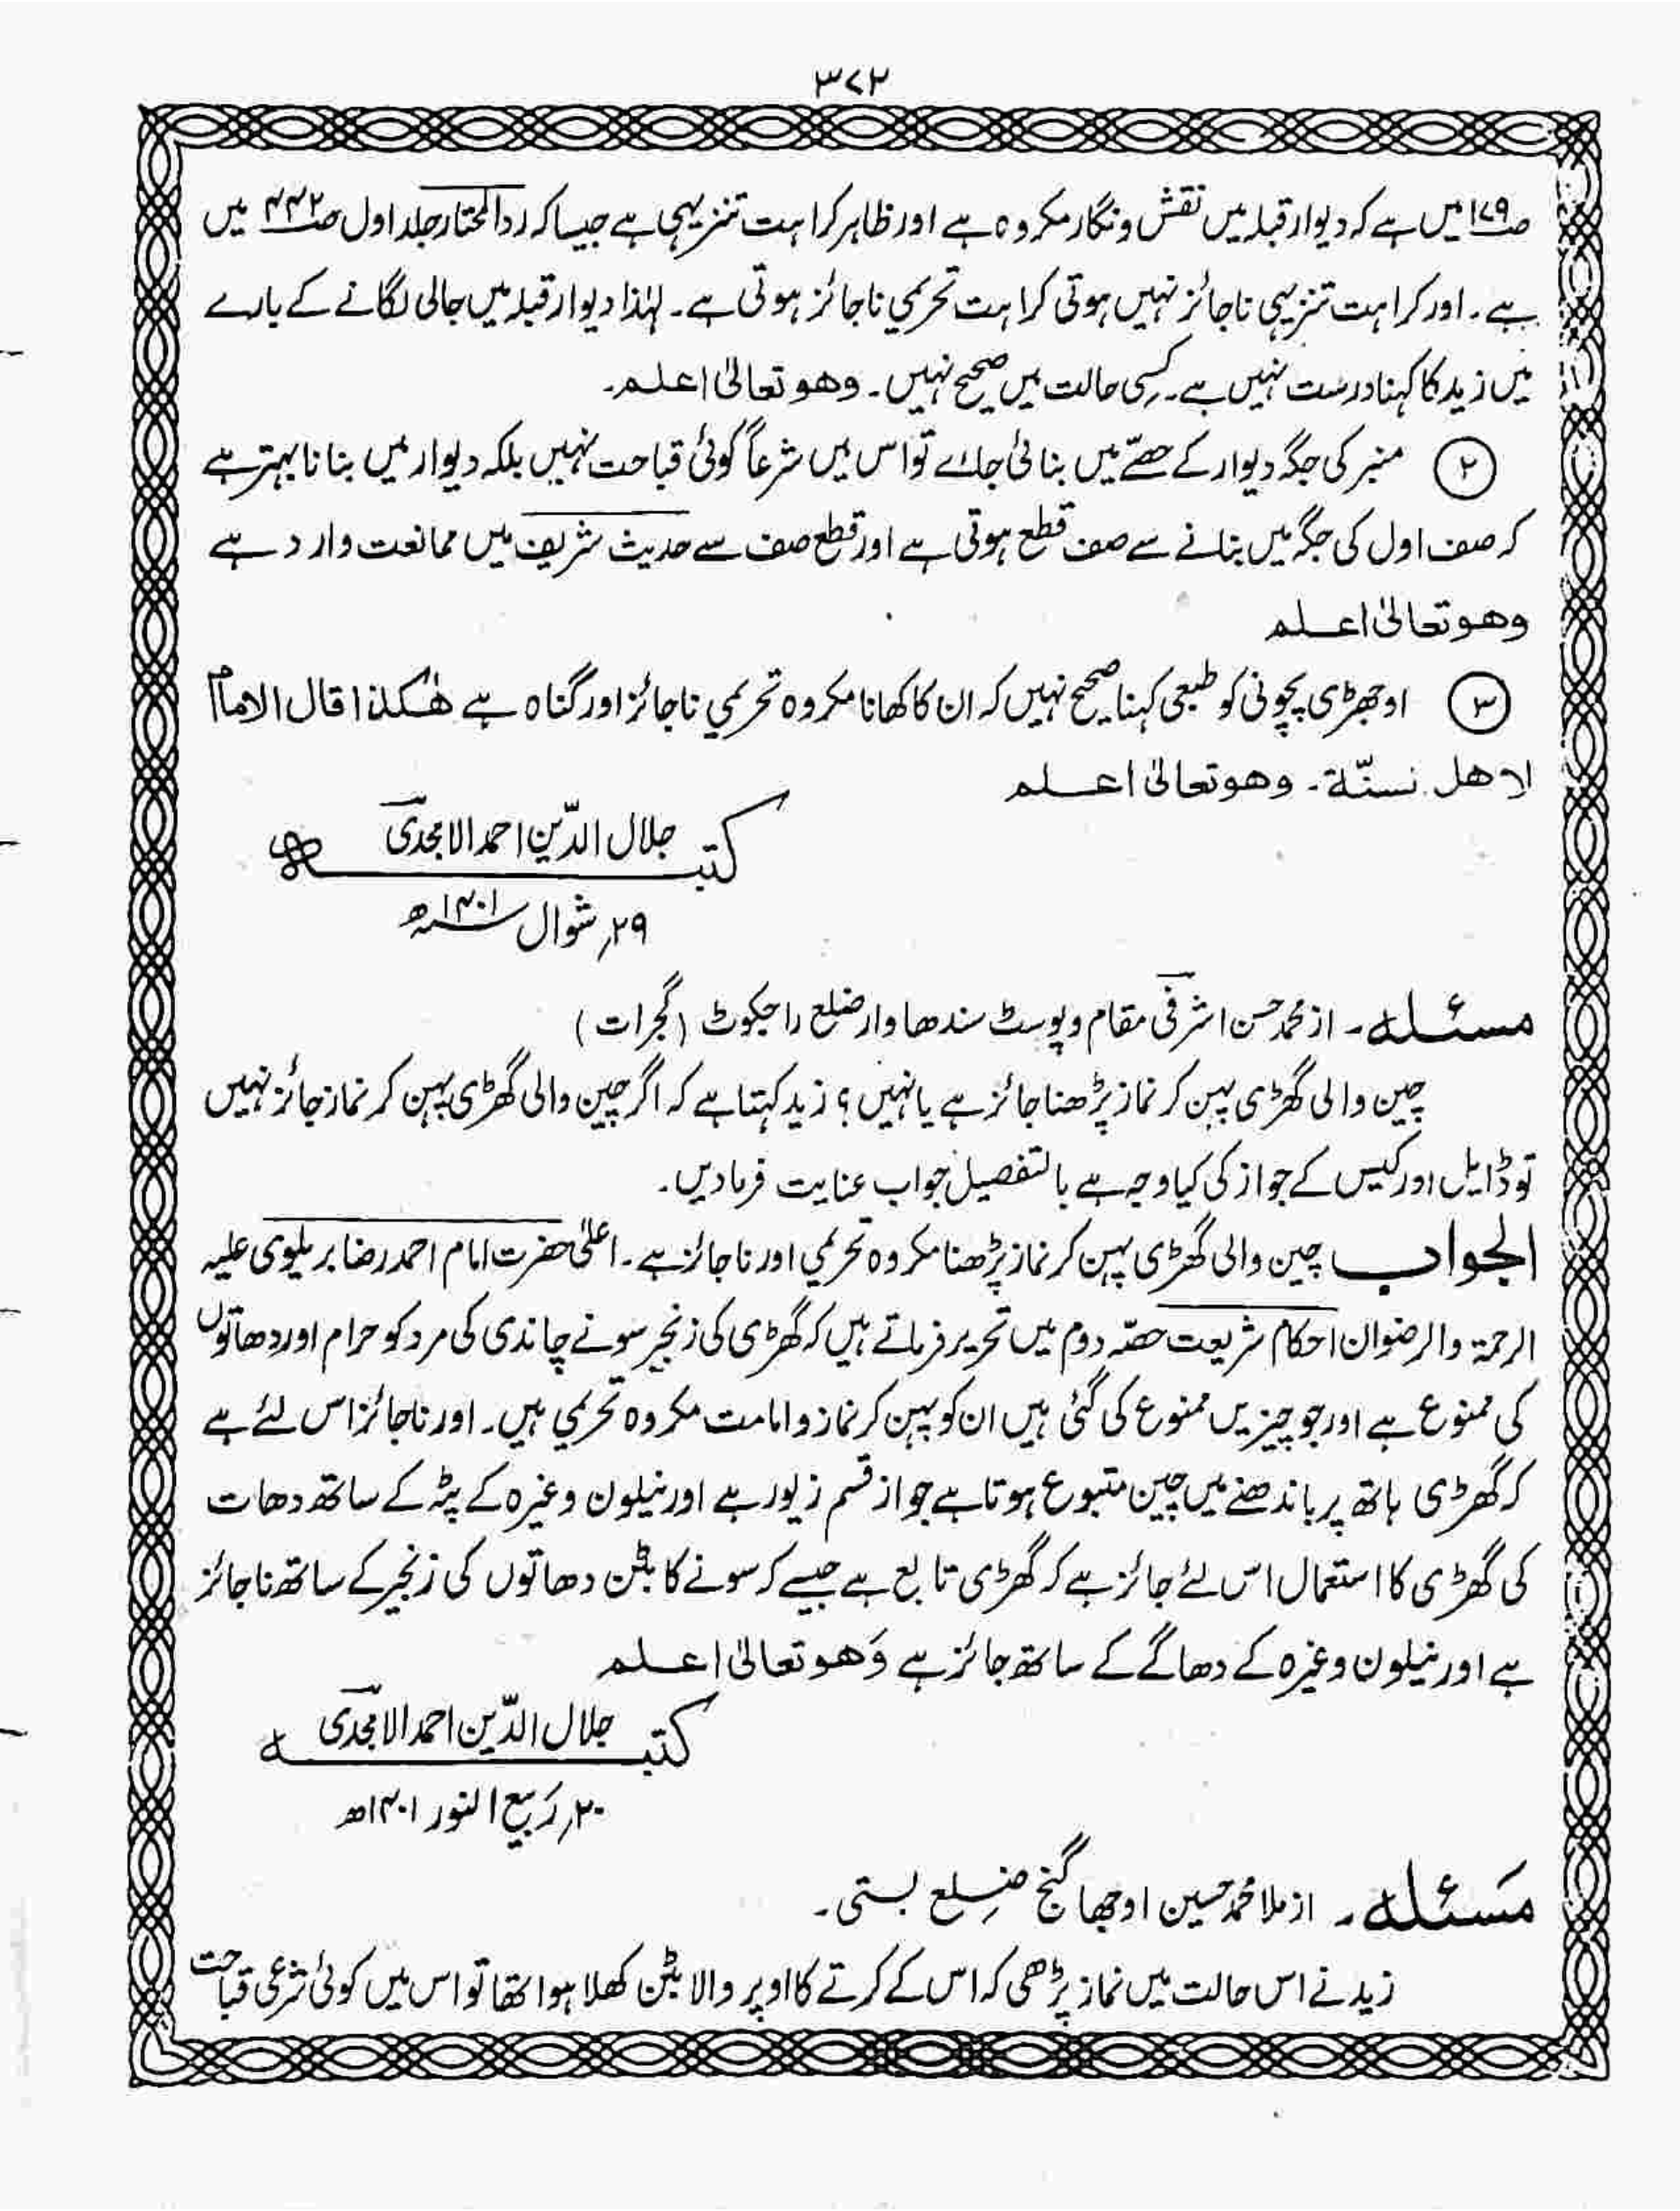 ۳۷۲
صـ۱۷۹ میں ہے کہ دیوار قبلہ میں نقش و نگار مکروہ ہے اور ظاہر کراہت تنزیہی ہے جیسا کہ ردالمحتار جلد اول صـ۴۴۲ میں
ہے۔ اور کراہت تنزیہی ناجائز نہیں ہوتی کراہت تحریمی ناجائز ہوتی ہے۔ لہٰذا دیوار قبلہ میں جالی لگانے کے بارے
میں زید کا کہنا درست نہیں ہے۔ کسی حالت میں صحیح نہیں۔ وھو تعالیٰ اعلم۔
۲ منبر کی جگہ دیوار کے حصّے میں بنائی جائے تو اس میں شرعاً کوئی قباحت نہیں بلکہ دیوار میں بنانا بہتر ہے
کہ صف اول کی جگہ میں بنانے سے صف قطع ہوتی ہے اور قطع صف سے حدیث شریف میں ممانعت وارد ہے
وھو تعالیٰ اعلم
۳ اوجھڑی پچونی کو طبعی کہنا صحیح نہیں کہ ان کا کھانا مکروہ تحریمی ناجائز اور گناہ ہے ھٰکذا قال الامام
لاھل نسنّۃ۔ وھو تعالیٰ اعلم
کتبہ جلال الدّین احمد الامجدی
۲۹؍ شوال ۱۴۰۱ھ
مسئلہ۔ از محمد حسن اشرفی مقام و پوسٹ سندھاوار ضلع راجکوٹ (گجرات)
چین والی گھڑی پہن کر نماز پڑھنا جائز ہے یا نہیں؟ زید کہتا ہے کہ اگر چین والی گھڑی پہن کر نماز جائز نہیں
تو ڈایل اور کیس کے جواز کی کیا وجہ ہے بالتفصیل جواب عنایت فرمادیں۔
الجواب چین والی گھڑی پہن کر نماز پڑھنا مکروہ تحریمی اور ناجائز ہے۔ اعلیٰ حضرت امام احمد رضا بریلوی علیہ
الرحمۃ والرضوان احکام شریعت حصّہ دوم میں تحریر فرماتے ہیں کہ گھڑی کی زنجیر سونے چاندی کی مرد کو حرام اور دھاتوں
کی ممنوع ہے اور جو چیزیں ممنوع کی گئی ہیں ان کو پہن کر نماز و امامت مکروہ تحریمی ہیں۔ اور ناجائز اس لئے ہے
کہ گھڑی ہاتھ پر باندھنے میں چین متبوع ہوتا ہے جو از قسم زیور ہے اور نیلون وغیرہ کے پٹہ کے ساتھ دھات
کی گھڑی کا استعمال اس لئے جائز ہے کہ گھڑی تابع ہے جیسے کہ سونے کا بٹن دھاتوں کی زنجیر کے ساتھ ناجائز
ہے اور نیلون وغیرہ کے دھاگے کے ساتھ جائز ہے وَھو تعالیٰ اعلم
کتبہ جلال الدّین احمد الامجدی
۲۰؍ رَبیع النور ۱۴۰۱ھ
مَسئلہ۔ از ملا محمد حسین اوجھا گنج ضلع بستی۔
زید نے اس حالت میں نماز پڑھی کہ اس کے کرتے کا اوپر والا بٹن کھلا ہوا تھا تو اس میں کوئی شرعی قباحت